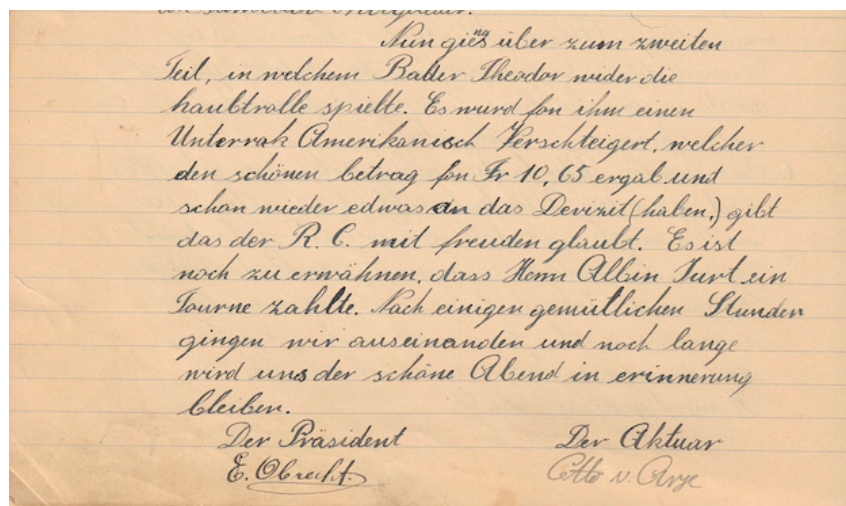 Nun gieng über zum zweiten
Teil, in welchem Bader Theodor wider die
haubtrolle spielte. Es wurd fon ihm einen
Unterrok Amerikanisch Verschteigert, welcher
den schönen betrag fon Fr 10,65 ergab und
schon wieder edwas an das Devizit (haben,) gibt
das der R. C. mit freuden glaubt. Es ist
noch zu erwähnen, dass Herrn Albin Jurt ein
Tourne zahlte. Nach einigen gemütlichen Stunden
gingen wir auseinanden und noch lange
wird uns der schöne Abend in erinnerung
bleiben.
Der Präsident Der Aktuar
E. Obrecht. Otto v. Arx